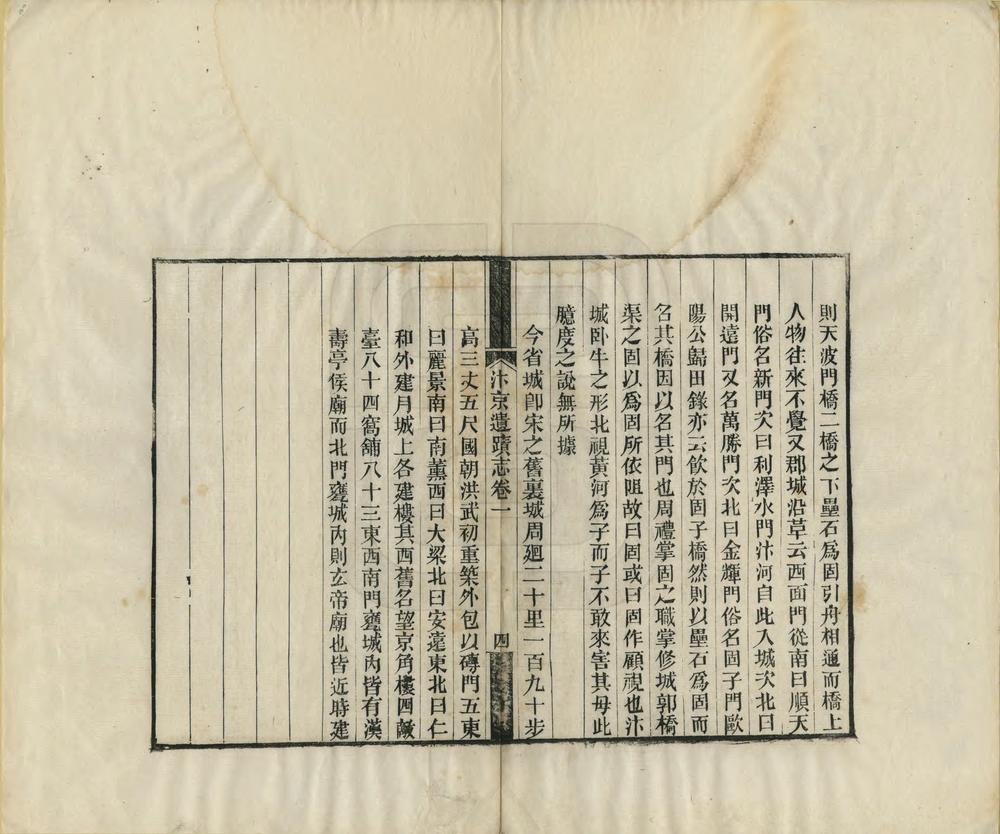 則天波門橋二橋之下壘石爲固引舟相通而橋上
人物往來不覺又郡城沿草云西面門從南曰順天
門俗名新門次曰利澤水門汴河自此入城次北曰
開遠門又名萬勝門次北曰金輝門俗名固子門歐
陽公歸田錄亦云飮於固子橋然則以壘石爲固而
名其橋因以名其門也周禮掌固之職掌修城郭橋
渠之固以爲固所依阻故曰固或曰固作顧視也汴
城卧牛之形北視黃河爲子而子不敢來害其母此
臆度之說無所據
今省城卽宋之舊裏城周廻二十里一百九十步
汴京遺蹟志卷一
四
高三丈五尺國朝洪武初重築外包以磚門五東
曰麗景南曰南薰西曰大梁北曰安遠東北曰仁
和外建月城上各建樓其西舊名望京角樓四敵
臺八十四窩舖八十三東西南門甕城內皆有漢
壽亭侯廟而北門甕城內則玄帝廟也皆近時建